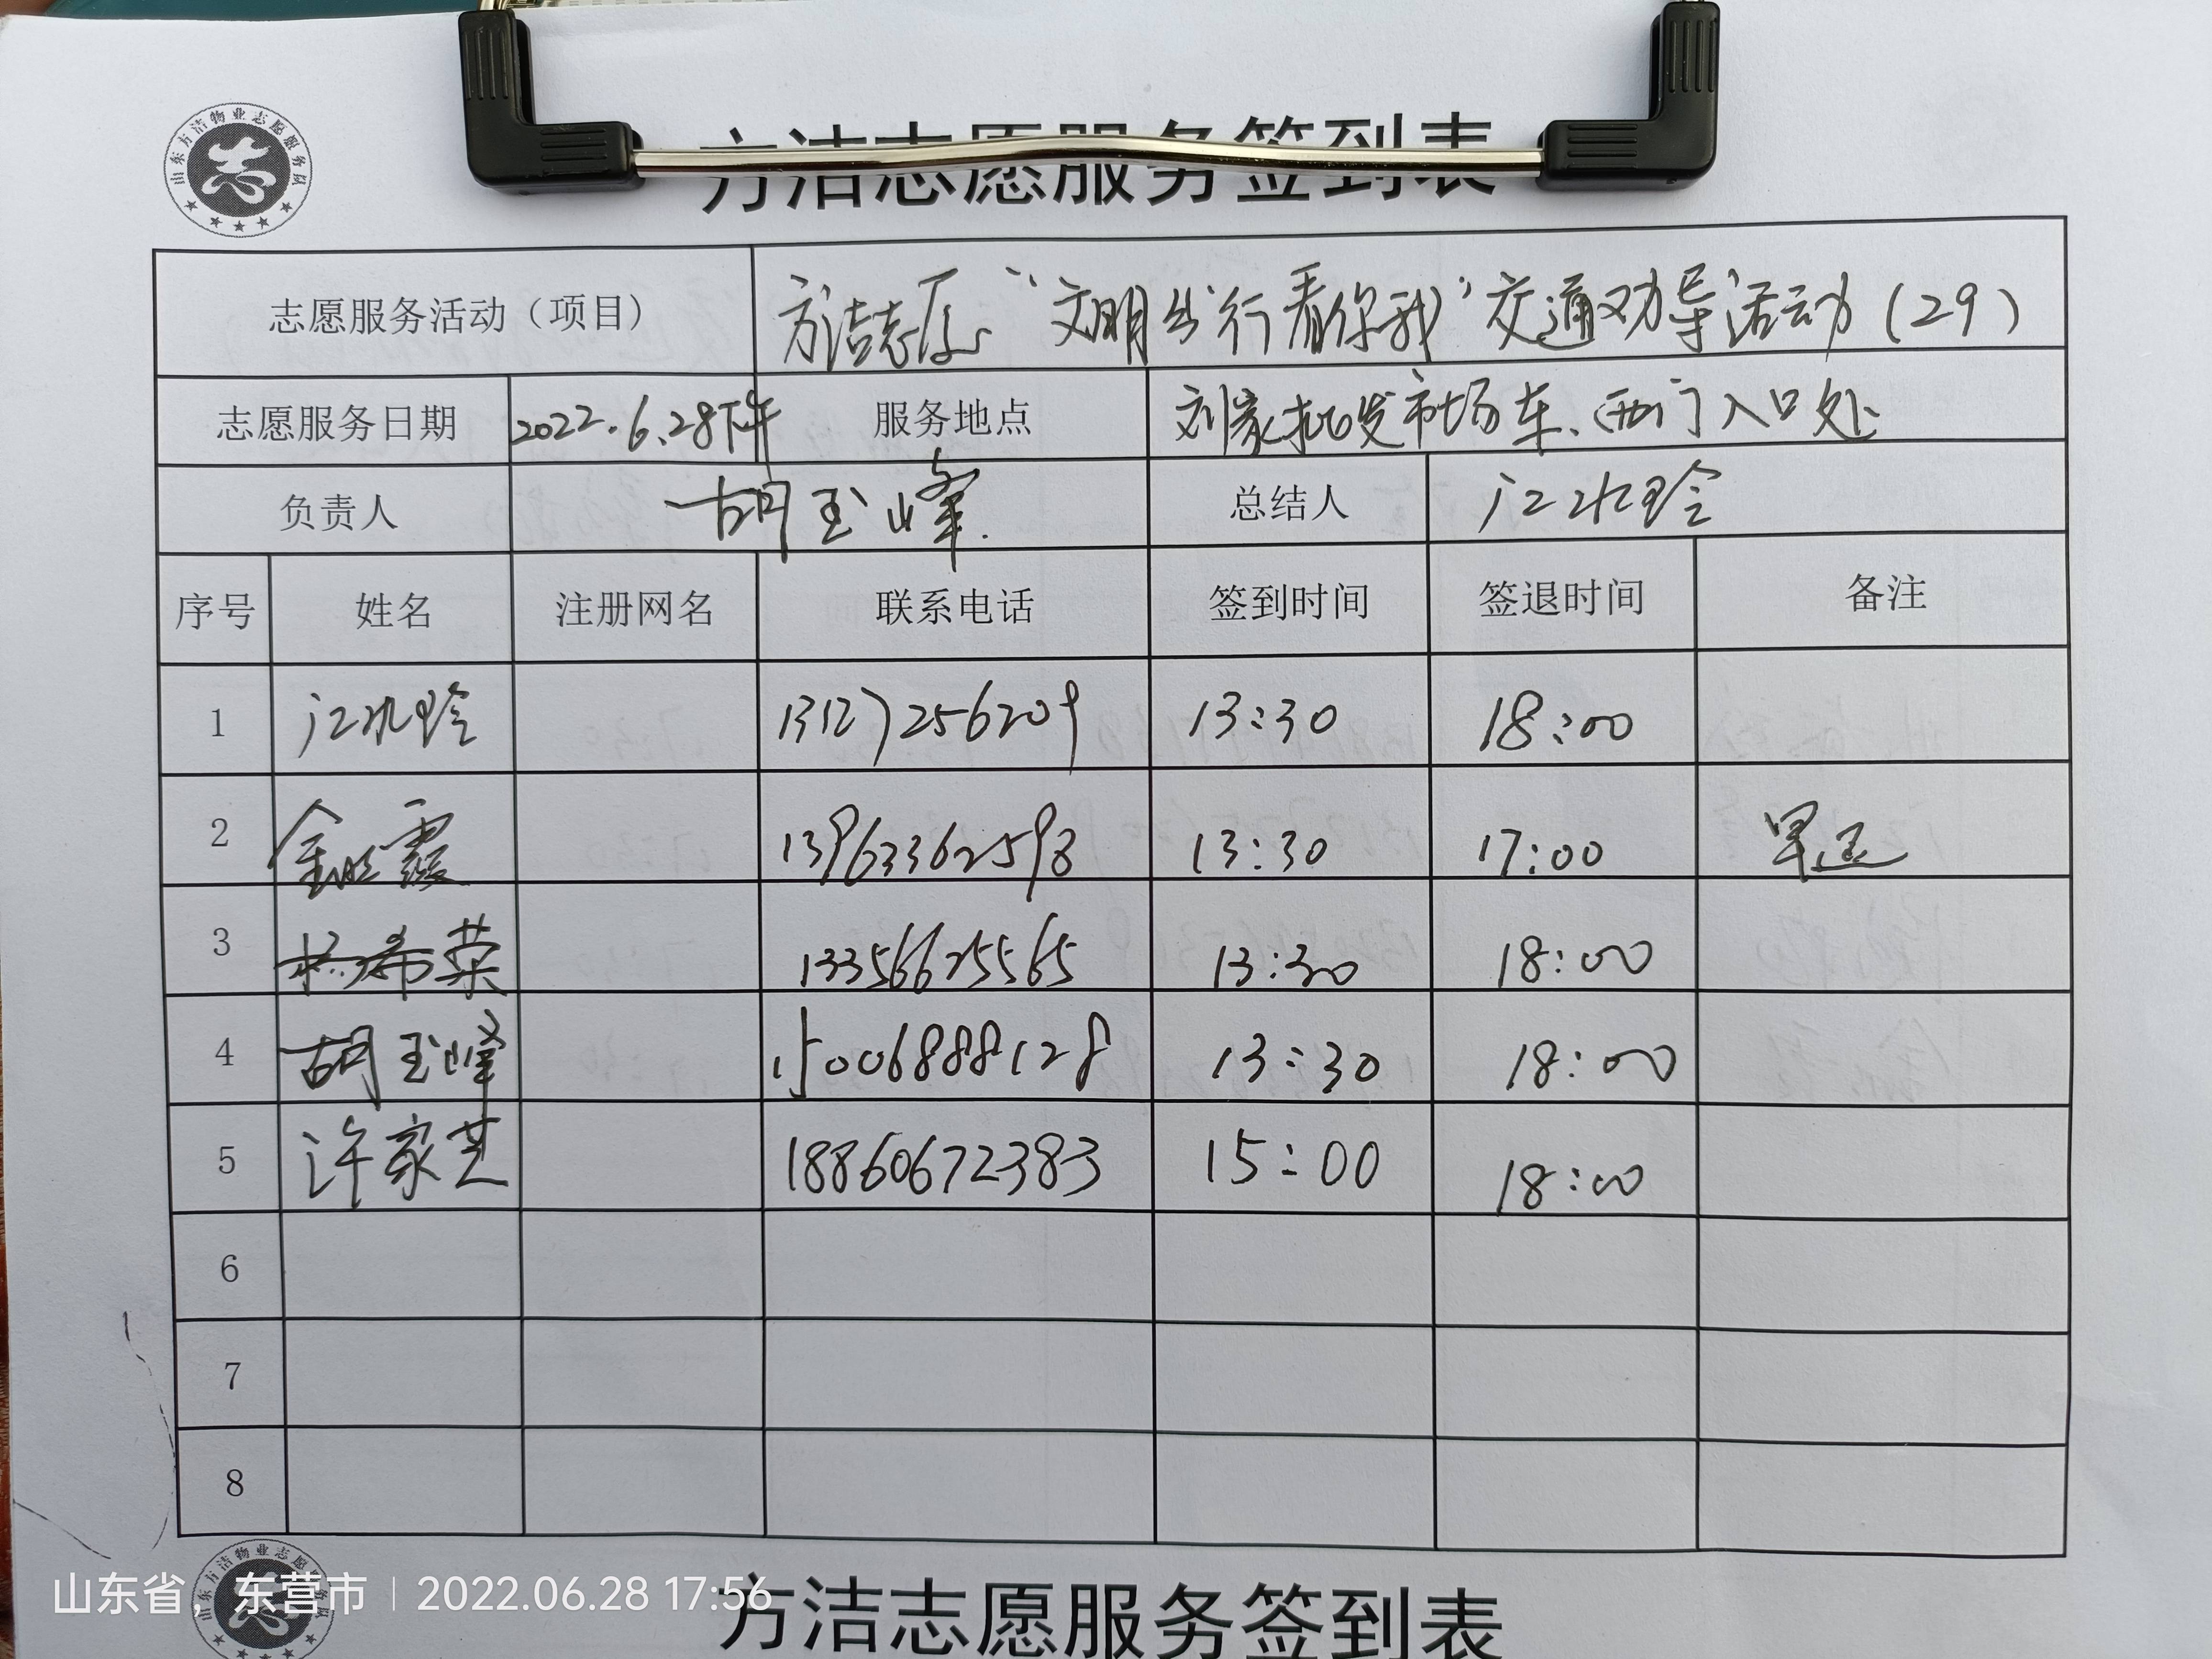 山东方洁物业志愿服务队
方洁志愿服务签到表
志愿服务活动（项目） 方洁志愿“文明出行看你我”交通劝导活动（29）
志愿服务日期 2022.6.28下午 服务地点 刘家批发市场东、西门入口处
负责人 胡玉峰 总结人 江水玲
序号 姓名 注册网名 联系电话 签到时间 签退时间 备注
1 江水玲 13127256209 13:30 18:00
2 金 霞 13963362598 13:30 17:00 早退
3 杨希荣 13356625565 13:30 18:00
4 胡玉峰 15006888128 13:30 18:00
5 许家芝 18860672383 15:00 18:00
6
7
8
山东方洁物业志愿服务队
山东省，东营市 | 2022.06.28 17:56
方洁志愿服务签到表